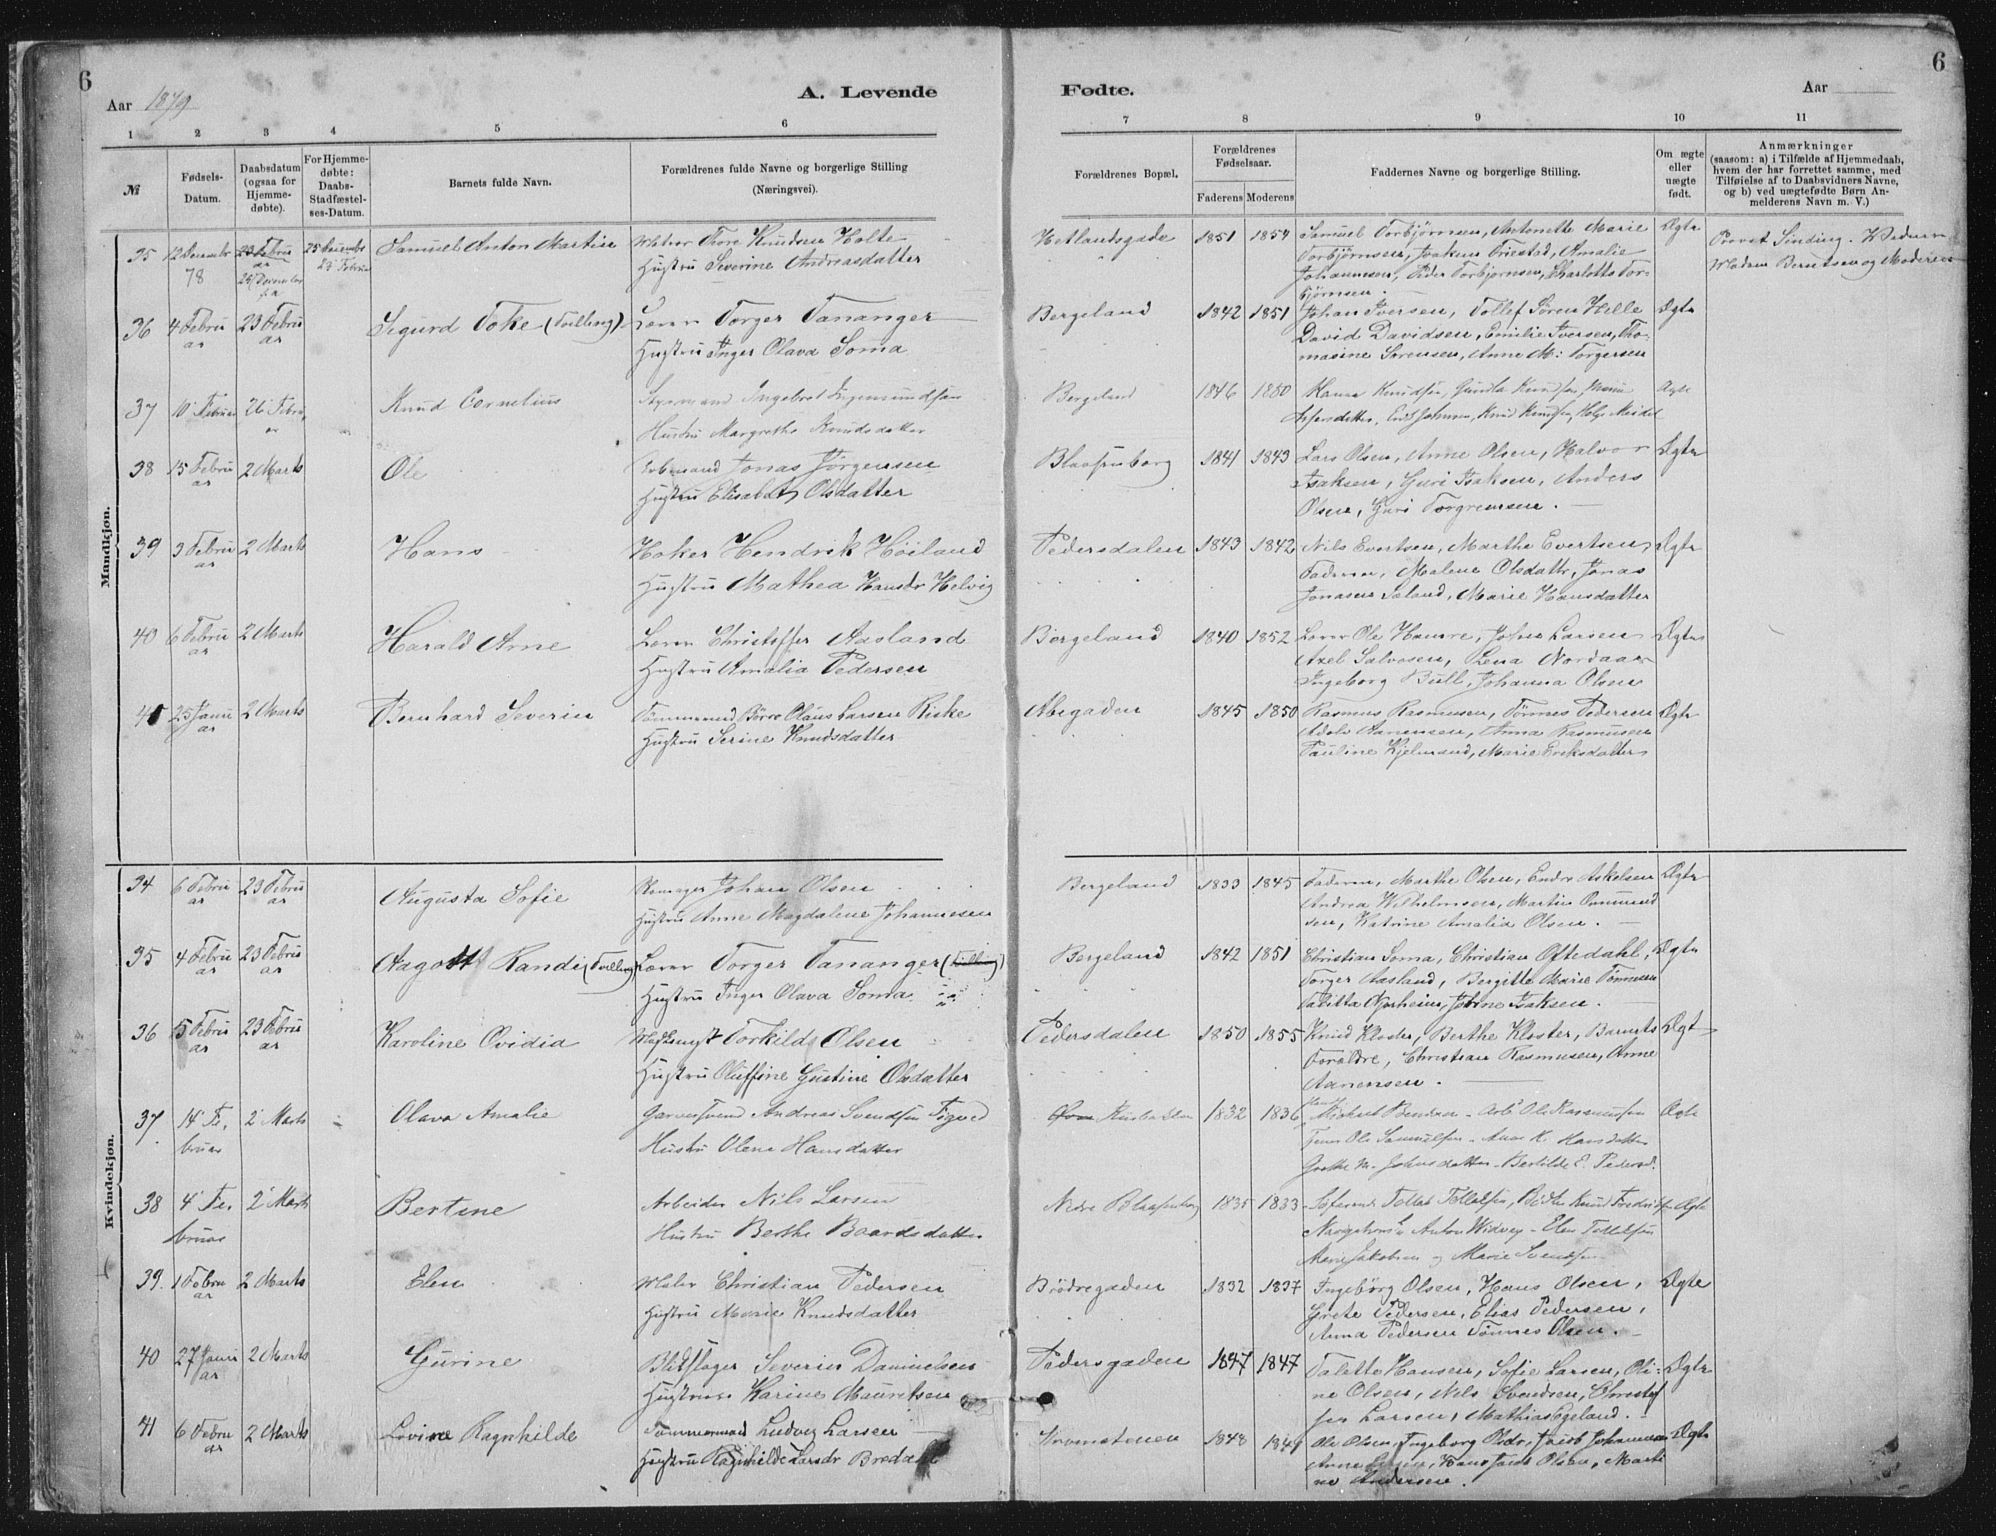 6
Aar 1879
A. Levende
Fødte.
Aar
6
1 2 3 4 5 6 7 8 9 10 11
№
Fødsels-Datum.
Daabsdatum (ogsaa for Hjemme-døbte).
For Hjemme-døbte: Daabs-Stadfæstel-ses-Datum.
Barnets fulde Navn.
Forældrenes fulde Navne og borgerlige Stilling
(Næringsvei).
Forældrenes Bopæl.
Forældrenes Fødselsaar.
Faderens Moderens
Faddernes Navne og borgerlige Stilling.
Om ægte eller uægte født.
Anmærkninger
(saasom: a) i Tilfælde af Hjemmedaab,
hvem der har forrettet samme, med
Tilføielse af to Daabsvidners Navne,
og b) ved uægtefødte Børn An-
melderens Navn m. V.)
Mandkjøn.
35 12 December 78 23 Februar 25 December 25 December 23 Februar Samuel Anton Martin Thore Knudsen Holte
Hustru Severine Andreasdatter
Hetlandsgade 1851 1854 Samuel Torbjørnsen, Antonette Marie
Torbjørnsen, Joakim Friestad, Amalie
Johannesen, Peder Torbjørnsen, Charlotte Tor-
bjørnsen. Ægte
Provst Sinding.
Madam Berntsen og Moderen
36 4 Februar 23 Februar Sigurd Toke (Tvilling) Lærer Torger Tananger
Hustru Inger Olava Soma
Bergeland 1842 1851 Johan Iversen, Tollef Søren Helle
David Davidsen, Emilie Iversen, Tho-
masine Sørensen, Anne M: Torgersen Ægte
37 10 Februar 26 Februar Knud Cornelius Styrmand Ingebret Ingemundsen
Hustru Margrethe Knudsdatter
Bergeland 1846 1850 Hans Knudsen, Gunda Knudsen, Knud Knudsen Ægte
38 15 Februar 2 Marts Ole Jonas Jørgensen
Hustru Elisabet Olsdatter
Blaasenborg 1841 1843 Lars Olsen, Anne Olsen, Halvor
Isaksen, Guri Isaksen, Anders
Olsen, Guri Torgrimsen. Ægte
39 3 Februar 2 Marts Hans Høker Hendrik Høiland
Hustru Mathea Hansdr Helvig
Pedersdalen 1843 1842 Nils Evertsen, Marthe Evertsen,
Faderen, Malene Olsdatter, Jonas
Jonasen Søland, Marie Hansdatter Ægte
40 6 Februar 2 Marts Harald Arne Lærer Christoffer Aasland
Hustru Amalia Pedersen
Bergeland 1840 1852 Lærer Ole Hamre, John Larsen
Axel Salvesen, Lena Nordaas
Ingeborg Bull, Johanna Olsen Ægte
41 25 Januar 2 Marts Bernhard Severin Tømmermd Børre Olaus Larsen Riske
Hustru Serine Knudsdatter
Abegaden 1845 1850 Rasmus Rasmusen, Tønnes Pedersen
Adolv Aanensen, Anna Rasmusen
Pauline Kjelmsand, Marie Eriksdatter Ægte
Kvindekjøn.
34 6 Februar 23 Februar Augusta Sofie Johan Olsen
Hustru Anne Magdalene Johannesen
Bergeland 1833 1845 Faderen, Marthe Olsen, Endre Askelsen
Andrea Wilhelmsen, Martin Ommund
sen, Katrine Amalia Olsen. Ægte
35 4 Februar 23 Februar Aagott Randi (Tvilling) Lærer Torger Tananger (Tvilling)
Hustru Inger Olava Soma
Bergeland 1842 1851 Christian Soma, Christian Oftedahl,
Torger Aasland, Bergitte Marie Tønnesen
Talitta Njærheim, Jobine Isaksen. Ægte
36 5 Februar 23 Februar Karoline Ovidia Torkild Olsen
Hustru Oluffine Gustine Olsdatter
Pedersdalen 1850 1855 Knud Kloster, Berthe Kloster, Barnets
Forældre, Christian Rasmusen, Anne
Aanensen. Ægte
37 14 Februar 2 Marts Olava Amalie Garversvend Andreas Svendsen Tigved
Hustru Olene Hansdatter
1832 1836 Arb. Ole Rasmussen
Ole Samuelsen - Anne K. Hansdatter
Grethe M. Johnsdatter - Bertilde E. Pedersd. Ægte
38 4 Februar 2 Marts Bertine Arbeider Nils Larsen
Hustru Berthe Baardsdatter
Nedre Blaasenborg 1835 1833 Sømand Tollef Tollefsen, Knud Fredriksen
Anton Widvey - Elen Tollefsen
Marie Jakobsen og Marie Svendsen Ægte
39. 1 Februar 2 Marts Elen Maler Christian Pedersen
Hustru Marie Knudsdatter
Brødregaden 1832 1837 Ingebørg Olsen, Hans Olsen,
Grete Pedersen, Elias Pedersen,
Anna Pedersen Tønnes Olsen. Ægte
40 27 Januar 2 Marts Gurine Blikslager Severin Danielsen
Hustru Karine Mauritsen
Pedersgaden 1847 1847 Talette Hansen, Sofie Larsen, Oli-
ne Olsen, Nils Svendsen, Christof
fer Larsen, Mathias Egeland. Ægte
41 6 Februar 2 Marts Lovine Ragnhilde Tømmermand Ludvig Larsen
Hustru Ragnhilde Larsdr Bredahl
1848 1849 Ole Olsen, Ingeborg Olsdr, Jacob Johannesen
Anne Larsen, Hans Jacob Olsen, Marti
ne Andersen. Ægte